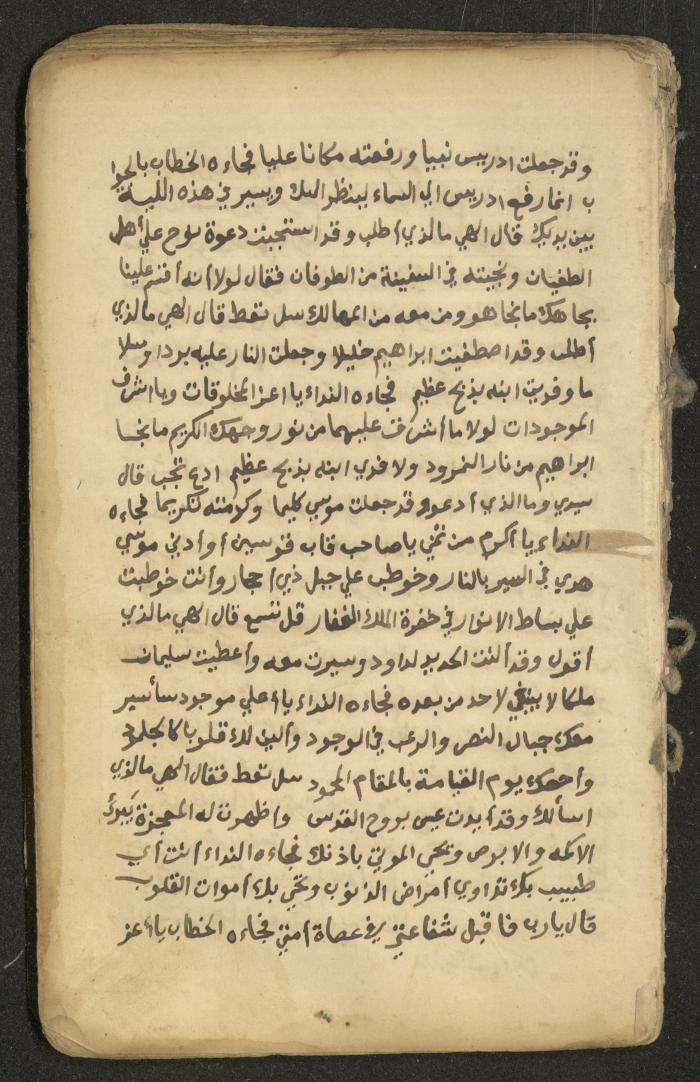 وقد جعلت ادريس نبيا ورفعته مكانا عليا فجاءه الخطاب بالجوا
ب انما رفع ادريس الي السماء لينظر اليك ويسير في هذه الليلة
بين يديك قال الهي ما لذي أطلب وقد استجبت دعوة نوح علي أهل
الطغيان ونجيته في السفينة من الطوفان فقال لولا أنه أقسم علينا
بجاهك ما نجا هو ومن معه من المهالك سل تعط قال الهي ما لذي
أطلب وقد اصطفيت ابراهيم خليلا وجعلت النار عليه بردا وسلا
ما وفديت ابنه بذبح عظيم فجاءه النداء يا اعز المخلوقات ويا اشرف
الموجودات لولا ما أشرف عليهما من نور وجهك الكريم ما نجا
ابراهيم من نار النمرود ولا فدي ابنه بذبح عظيم ادع تجب قال
سيدي وما الذي أدعو وقد جعلت موسي كليما وكرمته تكريما فجاءه
النداء يا أكرم من يا صاحب قاب قوسين أو أدني موسي
هدي في السير بالنار وخوطب علي جبل ذي أحجار وأنت خوطبت
علي بساط الانوار في حضرة الملك الغفار قل تسمع قال الهي ما لذي
أقول وقد ألنت الحديد لداود وسيرت معه وأعطيت سليمان
ملكا لا ينبغي لاحد من بعده فجاءه النداء يا أعلي موجود سأسير
معك جبال النصر والرعب في الوجود وألين لك قلوبا كالجلمود
وأخصك يوم القيامة بالمقام المحمود سل تعط فقال الهي ما لذي
اسألك وقد أيدت عيسي بروح القدس وأظهرت له المعجزة يبرئ
الاكمه والابرص ويحيي الموتي باذنك فجاءه النداء أنت أي
طبيب بك تداوي أمراض الذنوب وتحي بك أموات القلوب
قال يا رب فاقبل شفاعتي في عصاة أمتي فجاءه الخطاب يا أعز